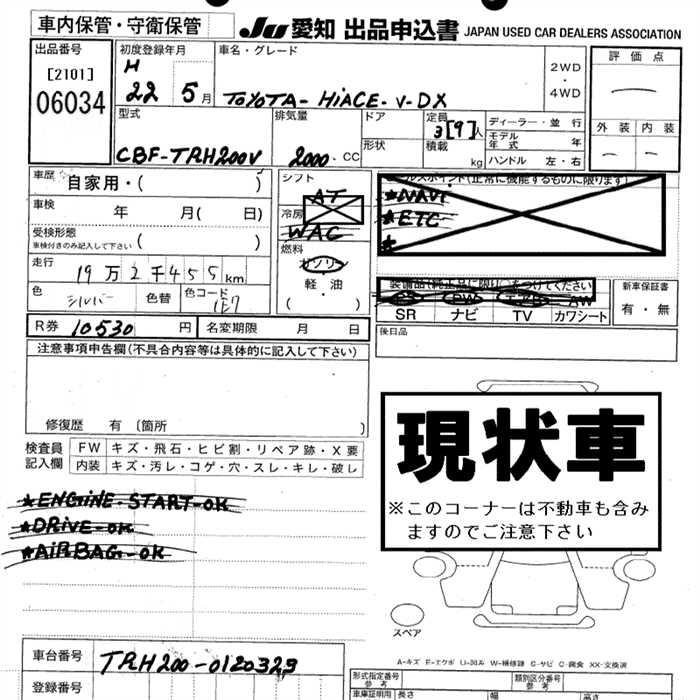 車内保管・守衛保管
JU 愛知 出品申込書 JAPAN USED CAR DEALERS ASSOCIATION
出品番号
[2101]
06034
初度登録年月
H
22 5月
車名・グレード
TOYOTA-HiACE-V-DX
2WD
・
4WD
評価点
外装 内装
型式
CBF-TRH200V
排気量
2000-CC
ドア
形状
定員
3[9]人
積載
kg
ディーラー・並行
モデル
年式 年
ハンドル 左・右
車歴
自家用・( )
車検
年 月( 日)
受検形態
車検付きのみ記入して下さい ( )
走行
19万2千455km
色
シルバー
色替
色コード
1E7
R券 10530 円
名変期限 月 日
シフト
AT
冷房
WAC
燃料
ガソリン
・
軽・油
( )
セールスポイント(正常に機能するものに限ります)
★NAVi
★ETC
★
装備品(純正品に限り○をつけてください)
PS PW エアB AW
SR ナビ TV カワシート
新車保証書
有・無
後日品
注意事項申告欄(不具合内容等は具体的に記入して下さい)
修復歴 有 〔箇所 〕
検査員
記入欄
FW キズ・飛石・ヒビ割・リペア跡・X要
内装 キズ・汚レ・コゲ・穴・スレ・キレ・破レ
★ENGINE-START-OK
★DRiVE-OK
★AiRBAG-OK
現状車
※このコーナーは不動車も含み
ますのでご注意下さい
スペア
A-キズ F-エクボ U-凹み W-補修跡 S-サビ C-腐食 XX-交換済
車台番号
TRH200-0120329
登録番号
形式指定番号
参考
類別区分番号
参考
車庫証明用
長さ 幅 高さ